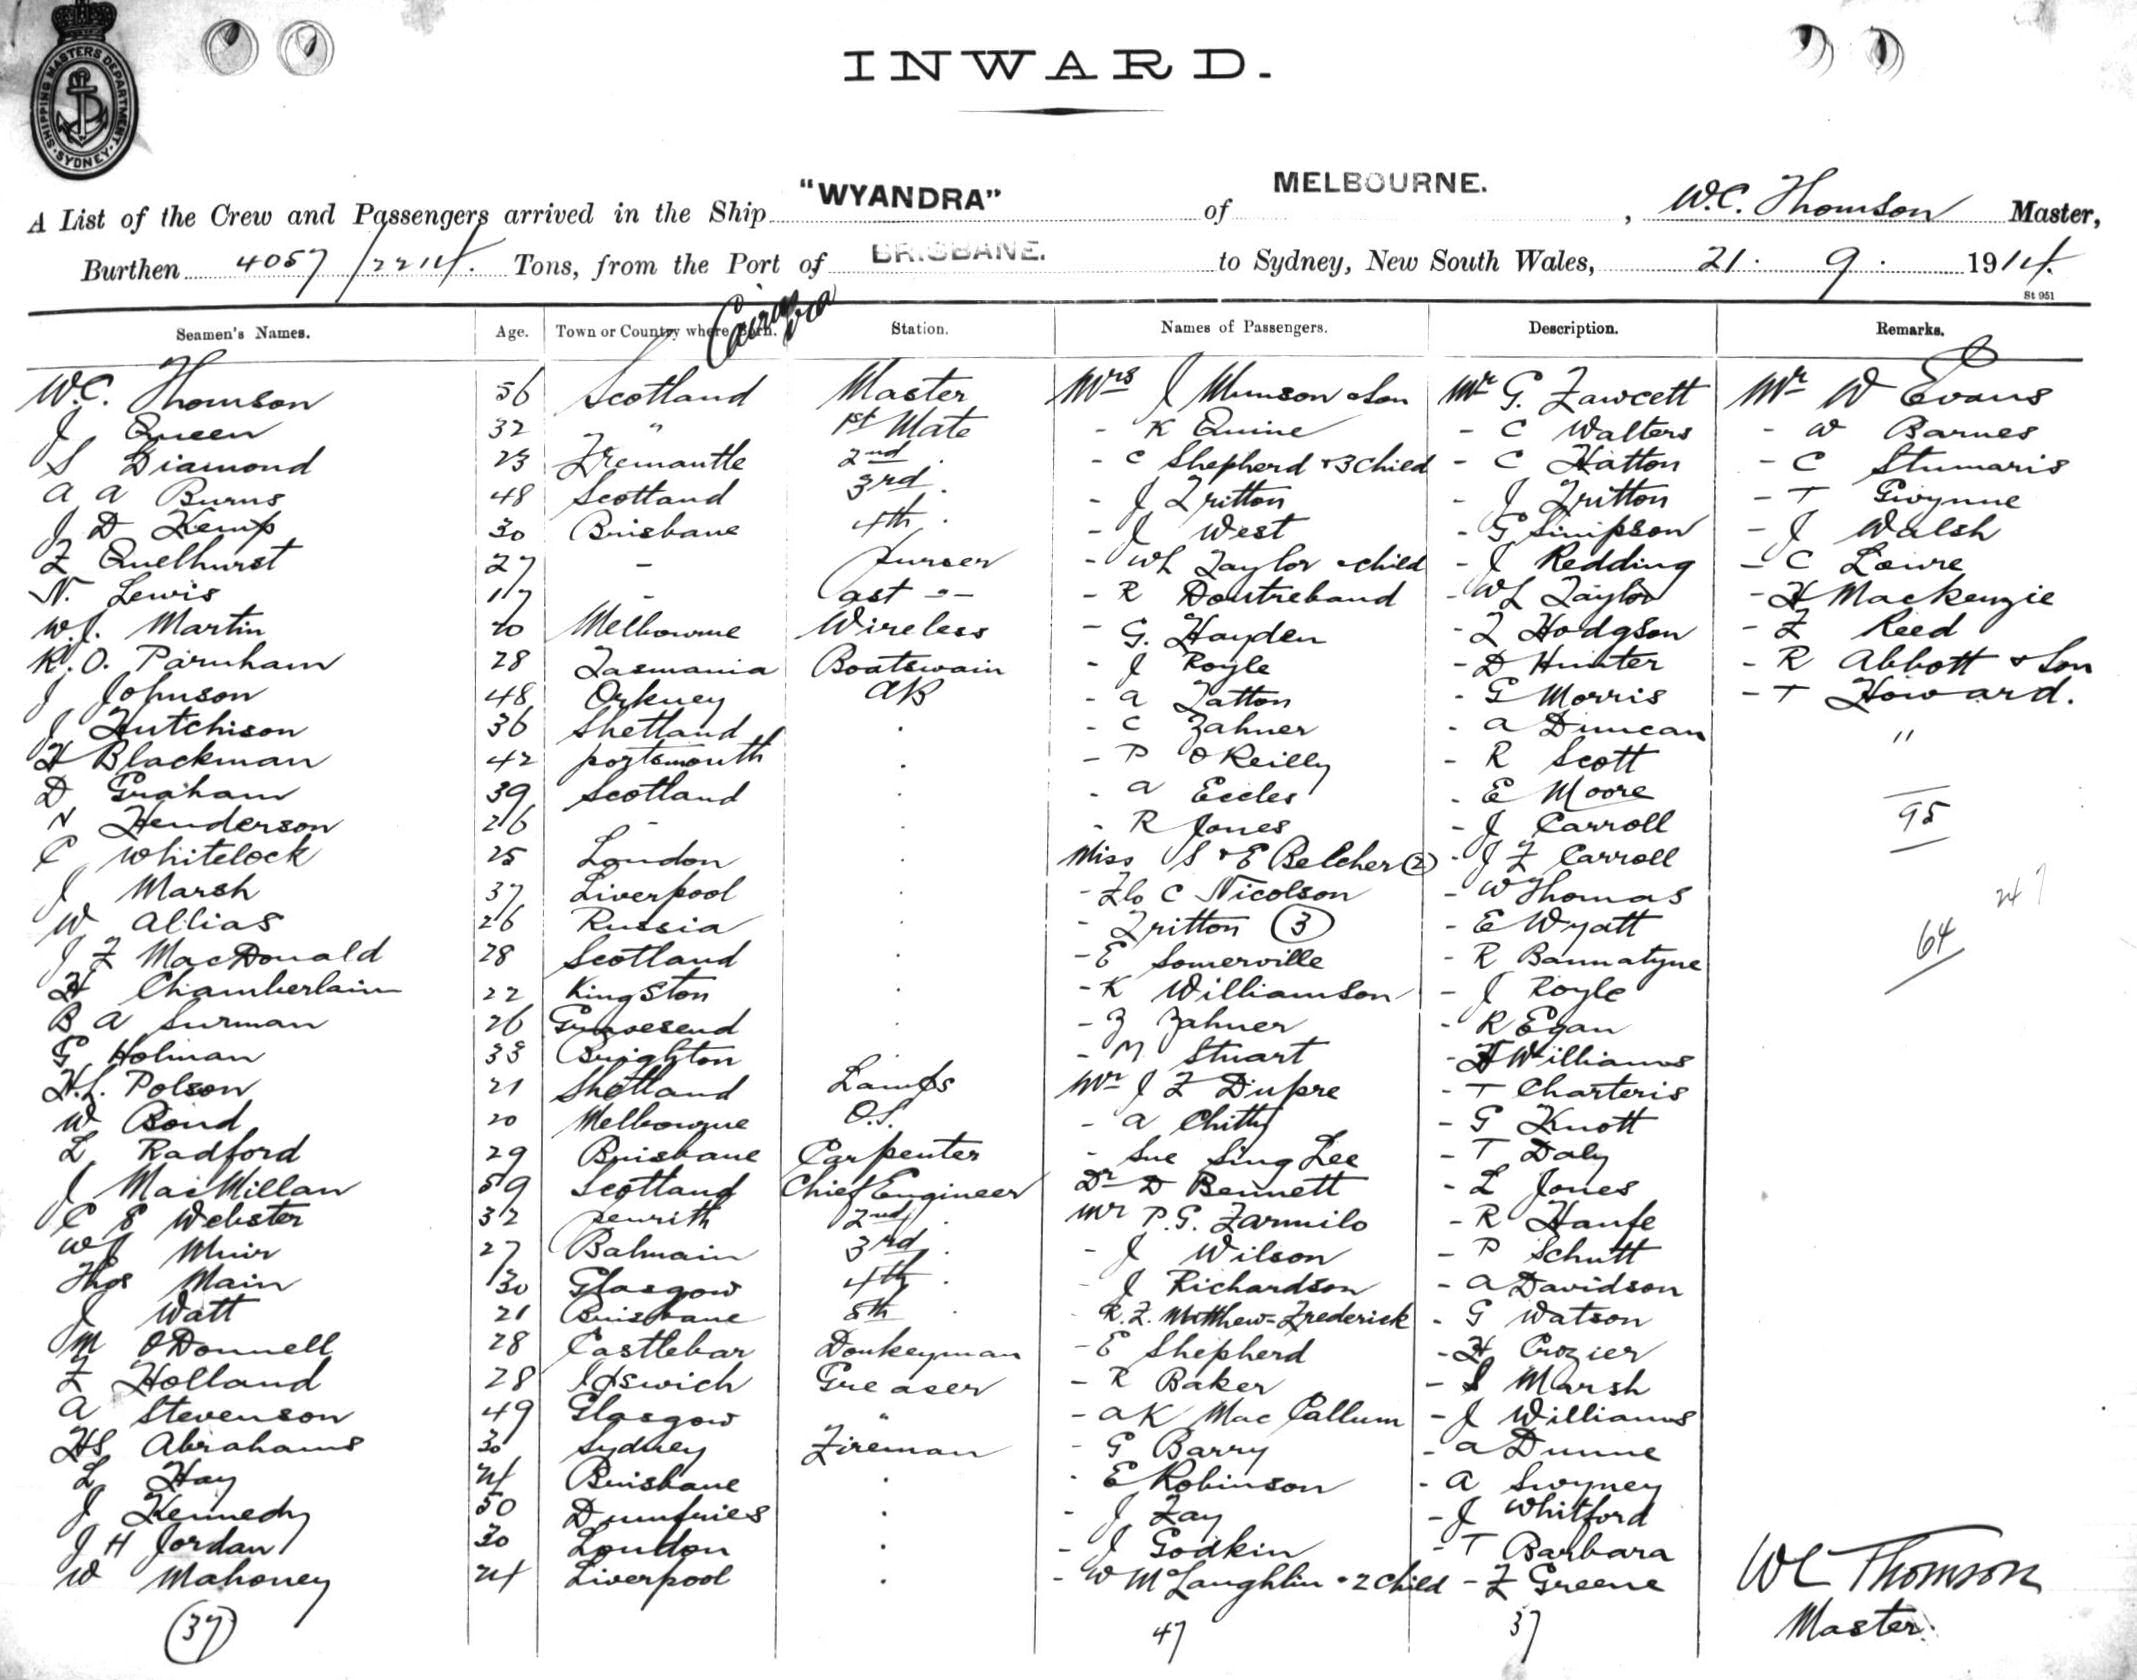 SHIPPING MASTERS DEPARTMENT
SYDNEY
INWARD.
A List of the Crew and Passengers arrived in the Ship "WYANDRA" of MELBOURNE. , W.C. Thomson Master,
Burthen 4057/2214. Tons, from the Port of BRISBANE. to Sydney, New South Wales, 21. 9. 1914.
St 951
Seamen's Names. Age. Town or Country where Born. Station. Names of Passengers. Description. Remarks.
W.C. Thomson 56 Scotland Master Mrs J Munson & Son Mr G. Fawcett Mr W Evans
J Queen 32 " 1st Mate - K Quine - C Walters - W Barnes
S Diamond 23 Fremantle 2nd . - C Shepherd & 3 child - C Hatton - C Stumaris
A A Burns 48 Scotland 3rd . - J Tritton - J Tritton - T Gwynne
J D Kemp 30 Brisbane 4th . - J West - G Simpson - J Walsh
F Quelhurst 27 - Purser - WL Taylor & child - J Redding - C Lowre
N. Lewis 17 - Asst -"- - R Doutreband - WL Taylor - H Mackenzie
W.J. Martin 20 Melbourne Wireless - G. Hayden - T Hodgson - F Reed
R.O. Parnham 28 Tasmania Boatswain - J Royle - D Hunter - R Abbott & Son
J Johnson 48 Orkney AB - A Tatton - G Morris - T Howard.
J Hutchison 36 Shetland . - C Zahner - A Duncan "
H Blackman 42 Portsmouth . - P O'Reilly - R Scott
D Graham 39 Scotland . - A Eccles - E Moore
N Henderson 26 - . - R Jones - J Carroll 95
C Whitelock 25 London . Miss S & E Belcher (2) - J F Carroll
J Marsh 37 Liverpool . - Flo C Nicolson - W Thomas 247
W Allias 26 Russia . - Tritton (3) - E Wyatt 64
J F MacDonald 28 Scotland . - E Somerville - R Bannatyne
H Chamberlain 22 Kingston . - K Williamson - J Royle
B A Surman 26 Gravesend . - Z Zahner - R Egan
G Holman 33 Brighton . - M Stuart - H Williams
H.L. Polson 21 Shetland Lamps Mr J F Dupre - T Charteris
W Bond 20 Melbourne O.S. - A Chitty - G Knott
L Radford 29 Brisbane Carpenter - Sue Sing Lee - T Daly
J MacMillan 59 Scotland Chief Engineer Dr D Bennett - L Jones
C E Webster 32 Penrith 2nd . Mr P.G. Farmilo - R Haufe
WJ Muir 27 Balmain 3rd . - J Wilson - P Schutt
Thos Main 30 Glasgow 4th . - J Richardson - A Davidson
J Watt 21 Brisbane 5th . R.F. Matthew=Frederick - G Watson
M O'Donnell 28 Castlebar Donkeyman - E Shepherd - H Crozier
F Holland 28 Ipswich Greaser - R Baker - S Marsh
A Stevenson 49 Glasgow " - AK MacCallum - J Williams
HS Abrahams 30 Sydney Fireman - G Barry - A Dunne
L Hay 24 Brisbane . - E Robinson - A Swyney
J Kennedy 50 Dumfries . - J Fay - J Whitford
J H Jordan 30 London . - J Godkin - T Barbara
W Mahoney 24 Liverpool . - W McLaughlin & 2 child - F Greene
(37) 47 37
WC Thomson
Master.